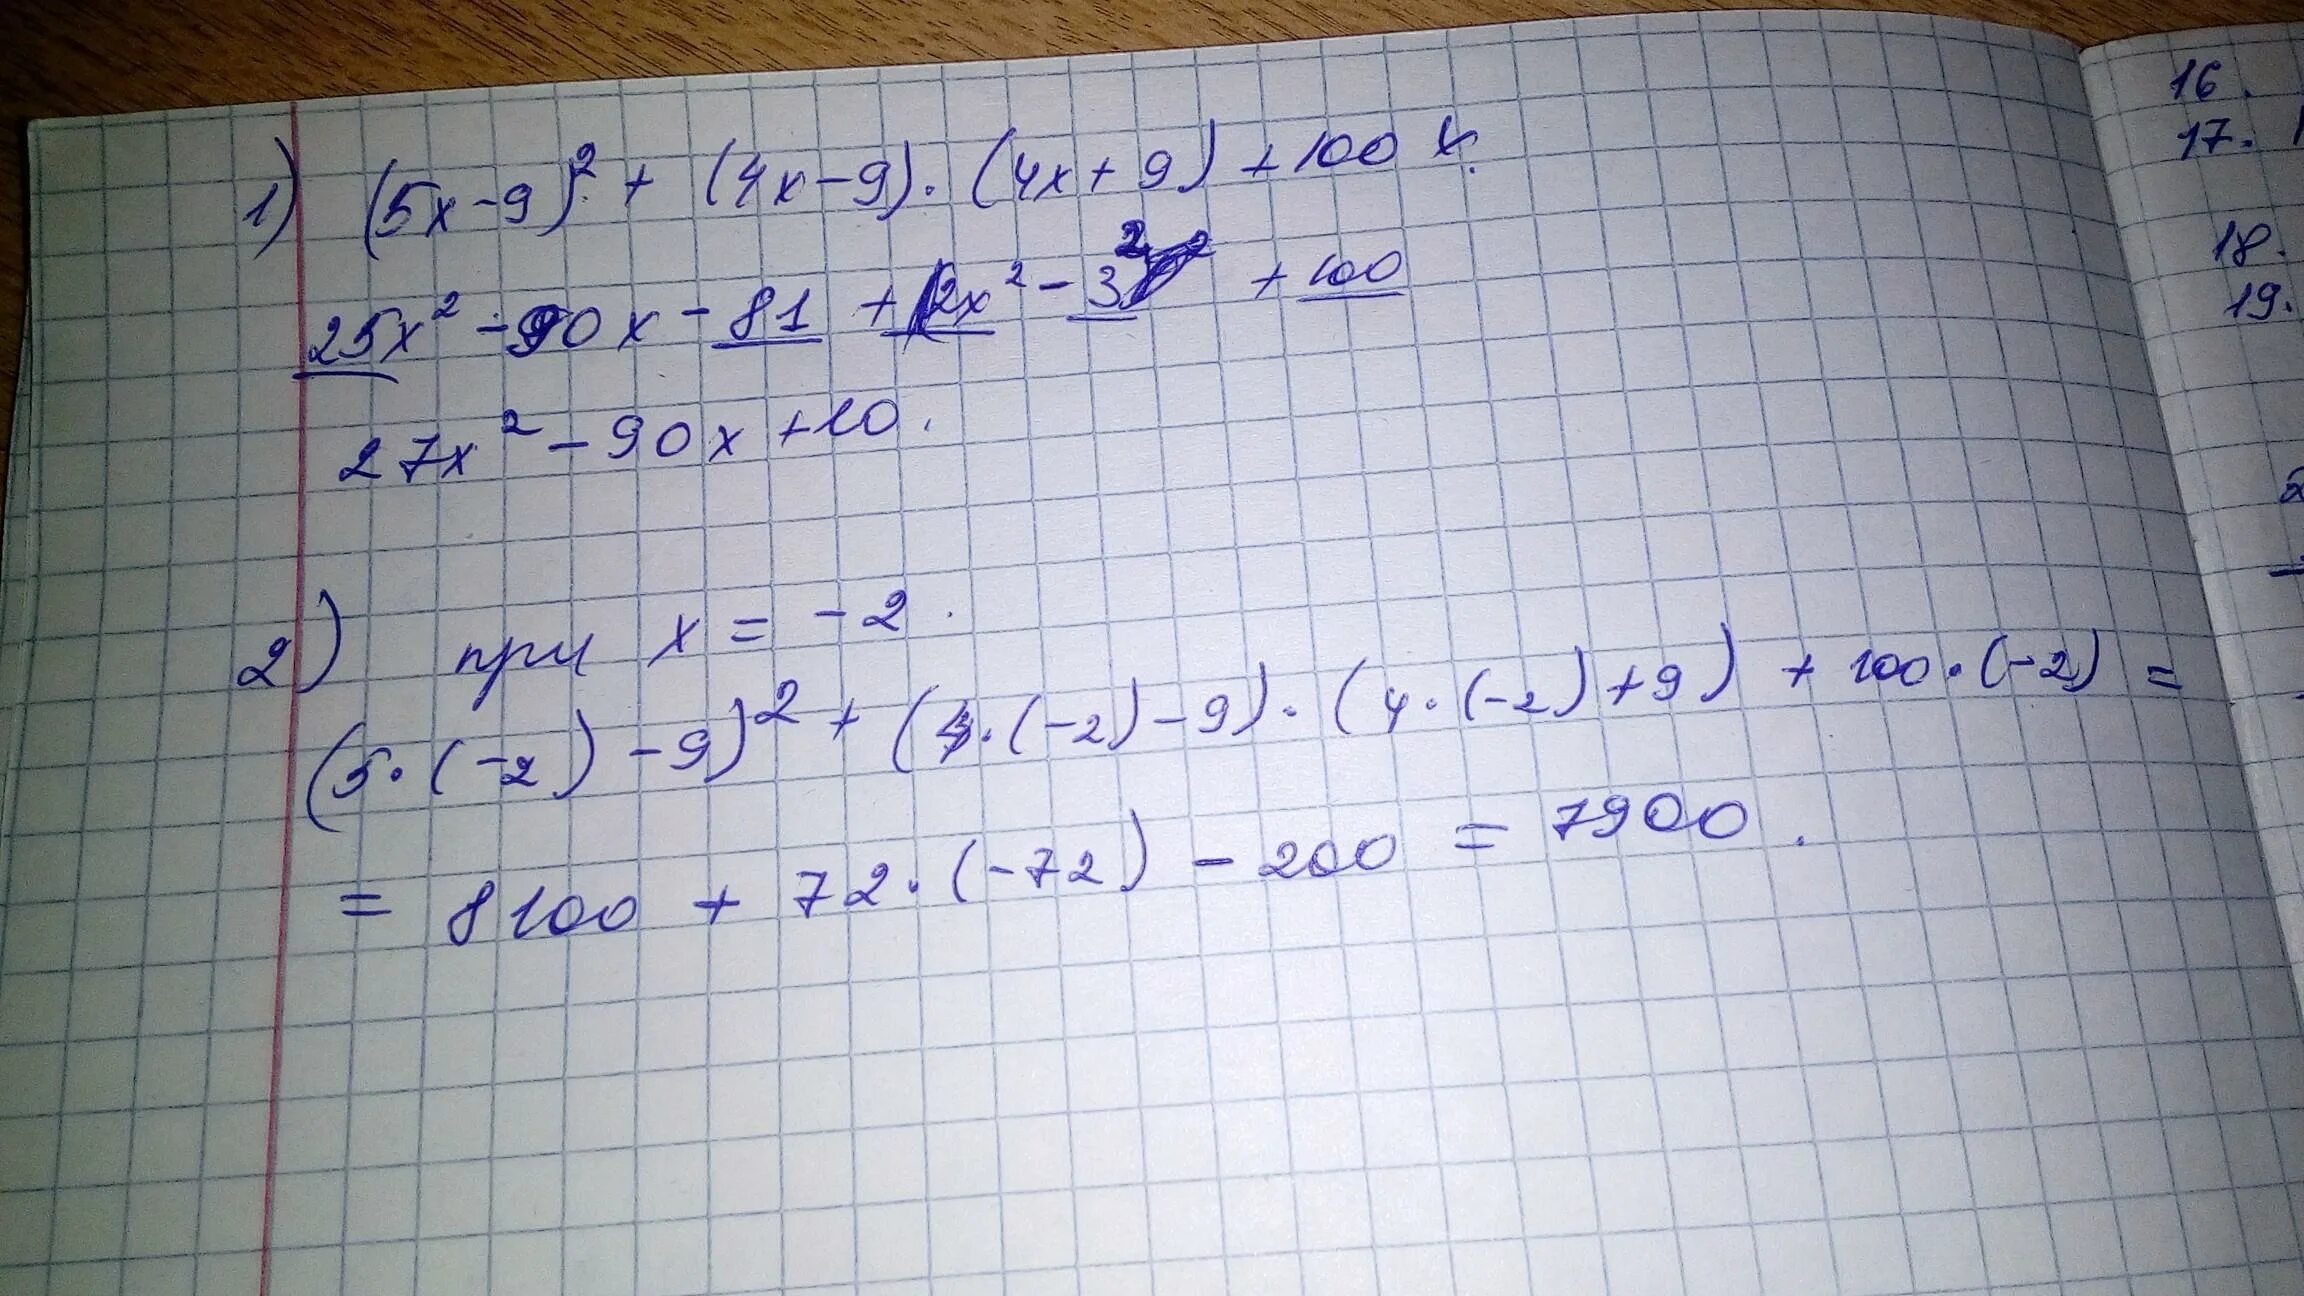 1) (5x-9)² + (4x-9)·(4x+9)+100x.
25x² - 90x - 81 + 2x² - 3² + 100
27x² - 90x + 10.
2) при x = -2.
(5·(-2)-9)² + (4·(-2)-9)·(4·(-2)+9) + 100·(-2) =
= 8100 + 72·(-72) - 200 = 7900.
16.
17.
18.
19.